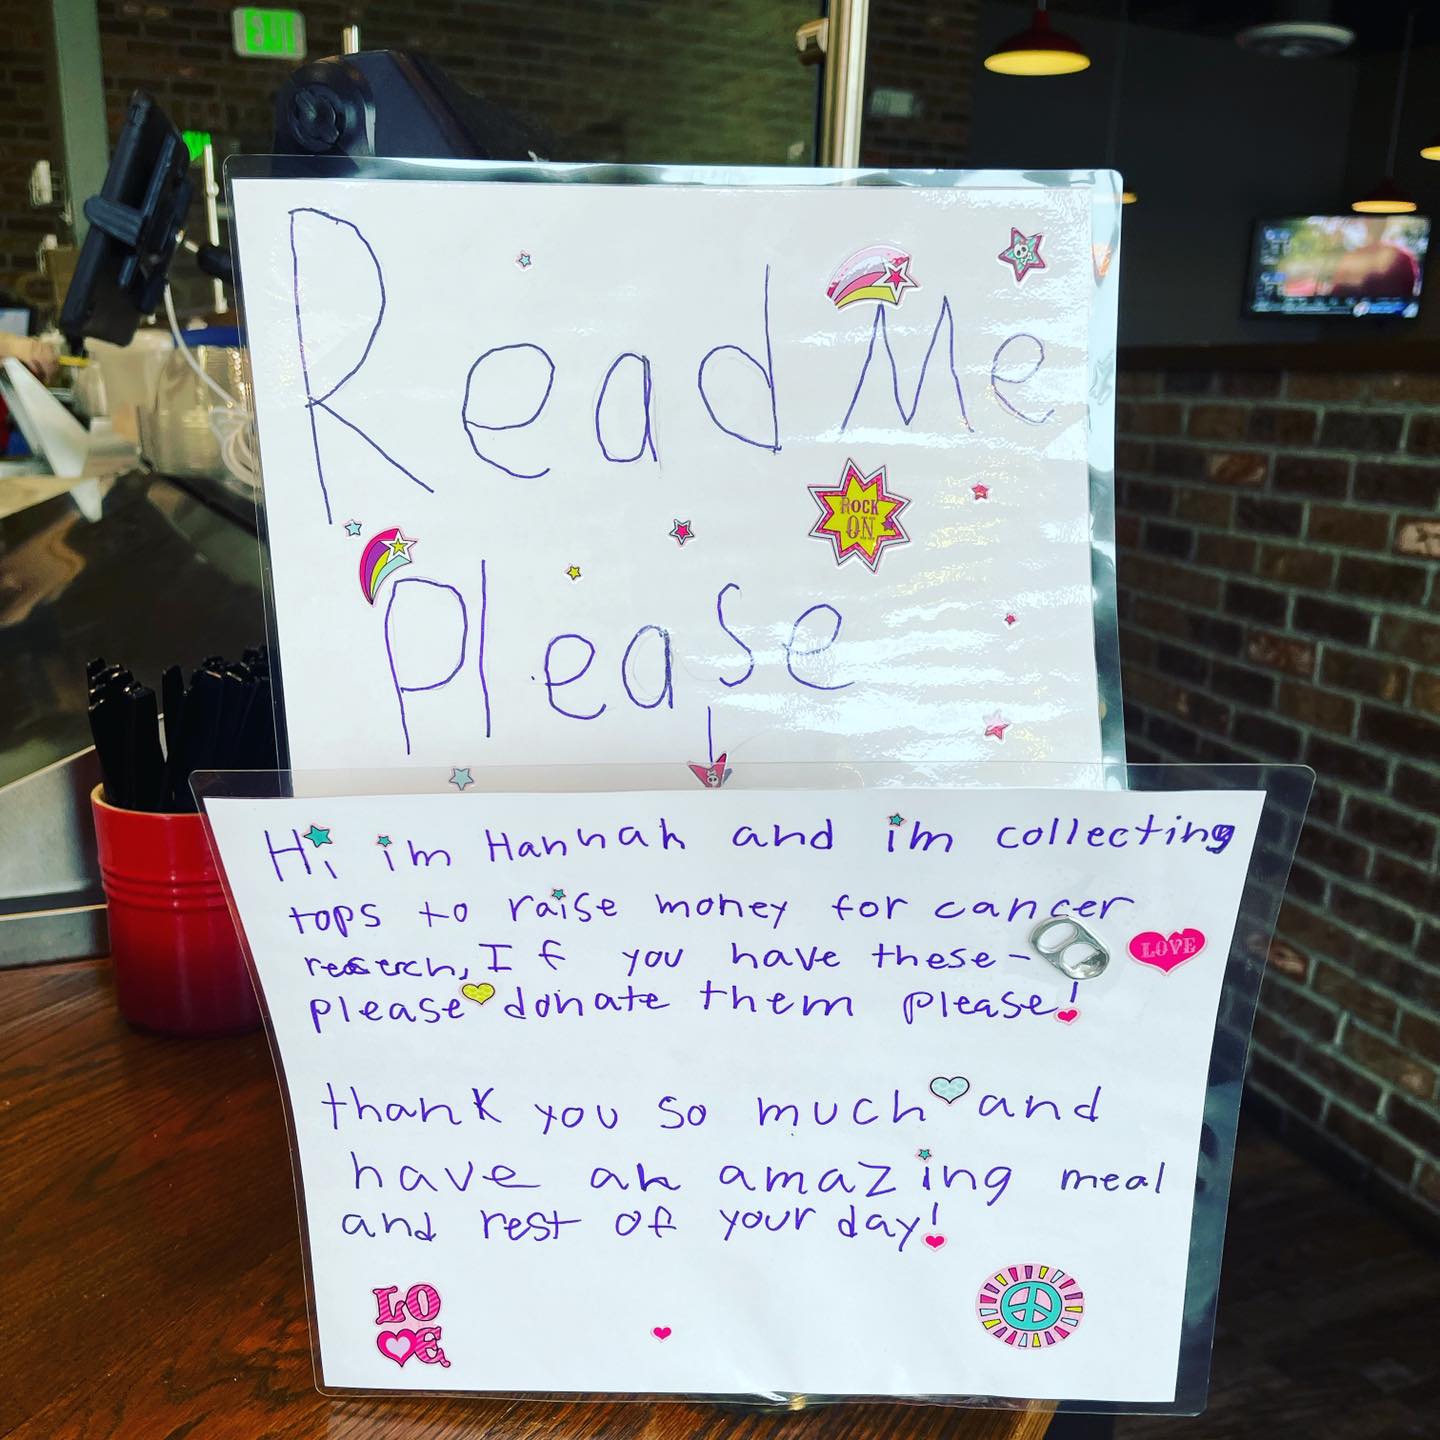 Read Me
ROCK
ON
Please!
Hi, im Hannah and im collecting
tops to raise money for cancer
research, If you have these-
LOVE
please donate them please!
thank you so much and
have an amazing meal
and rest of your day!
LO
VE